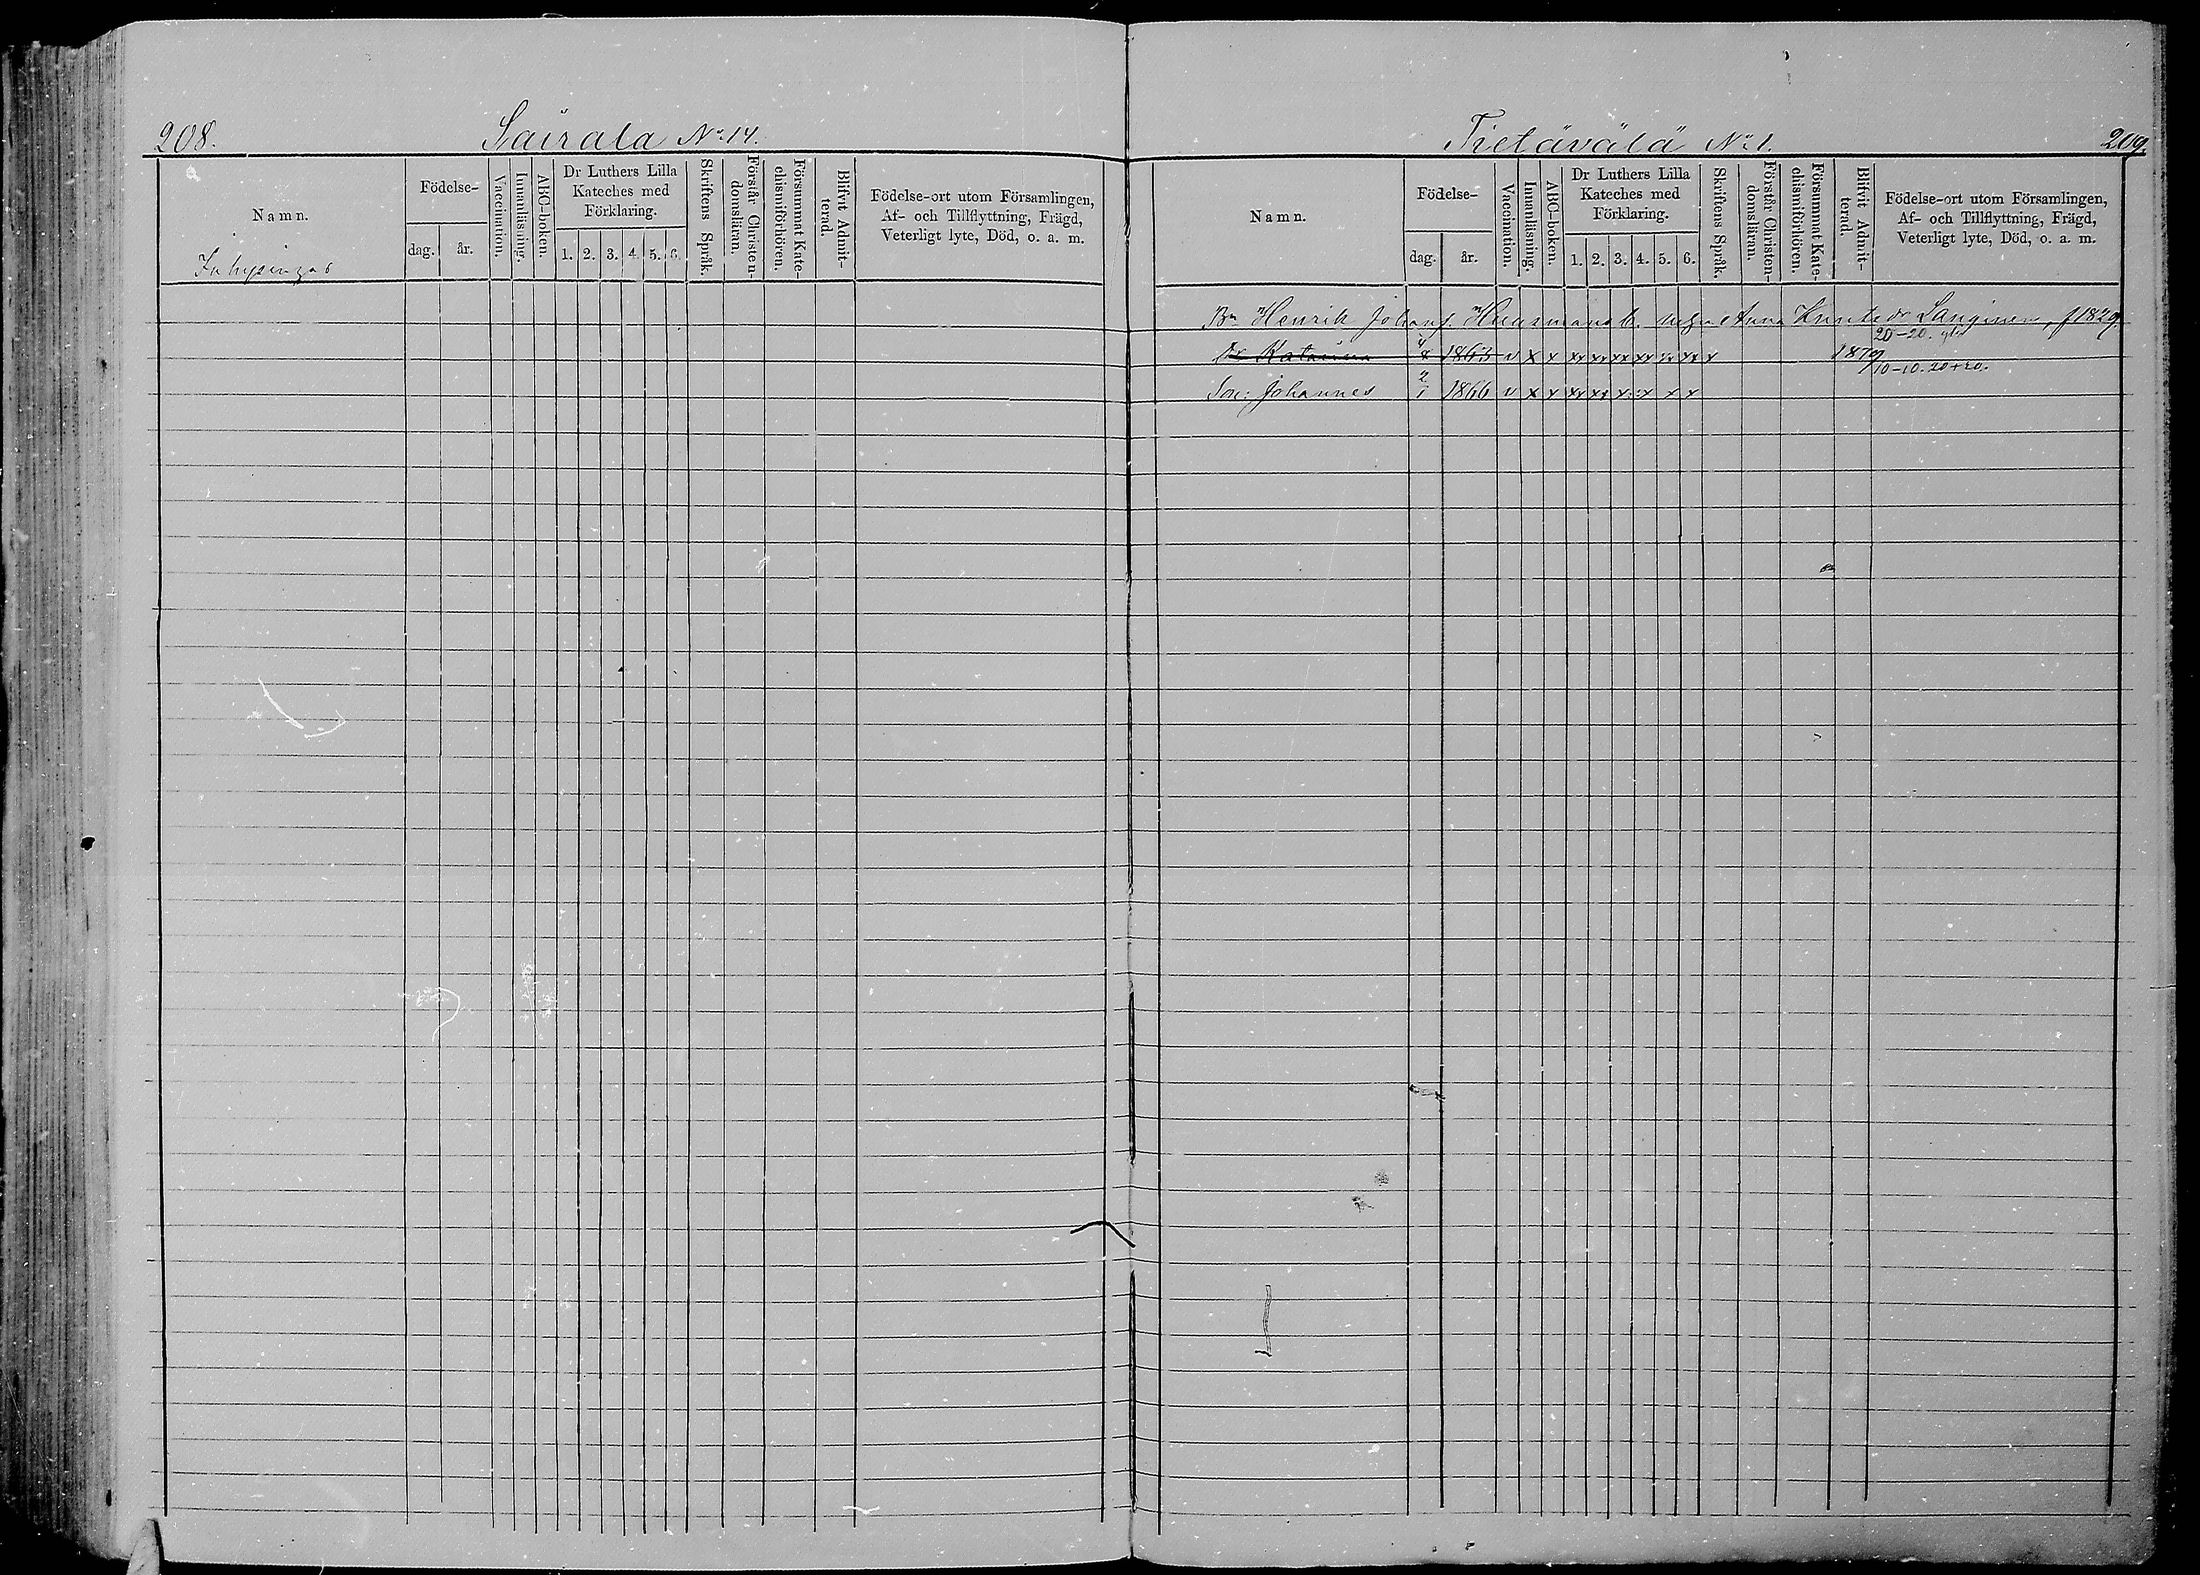 208.
Sairala No 14.
Namn.
Födelse-
dag.
år.
Vaccination.
Innanläsning.
ABC-boken.
Dr Luthers Lilla
Kateches med
Förklaring.
1. 2. 3. 4. 5. 6.
Skriftens Språk.
Förstår Christen-
domsläran.
Försummat Kate-
chismiförhören.
Blifvit Admit-
terad.
Födelse-ort utom Församlingen,
Af- och Tillflyttning, Frägd,
Veterligt lyte, Död, o. a. m.
Inhysingar
Tietävälä No 1.
209.
Namn.
Födelse-
dag.
år.
Vaccination.
Innanläsning.
ABC-boken.
Dr Luthers Lilla
Kateches med
Förklaring.
1. 2. 3. 4. 5. 6.
Skriftens Språk.
Förstår Christen-
domsläran.
Försummat Kate-
chismiförhören.
Blifvit Admit-
terad.
Födelse-ort utom Församlingen,
Af- och Tillflyttning, Frägd,
Veterligt lyte, Död, o. a. m.
Bn Henrik Johans. Anna f 1829
20-20.
Dr Katarina 1863 v x x xx xx xx xx xx x 1879
10-10. 20+20.
Son: Johannes 2/1 1866 v x x xx xx x x x x